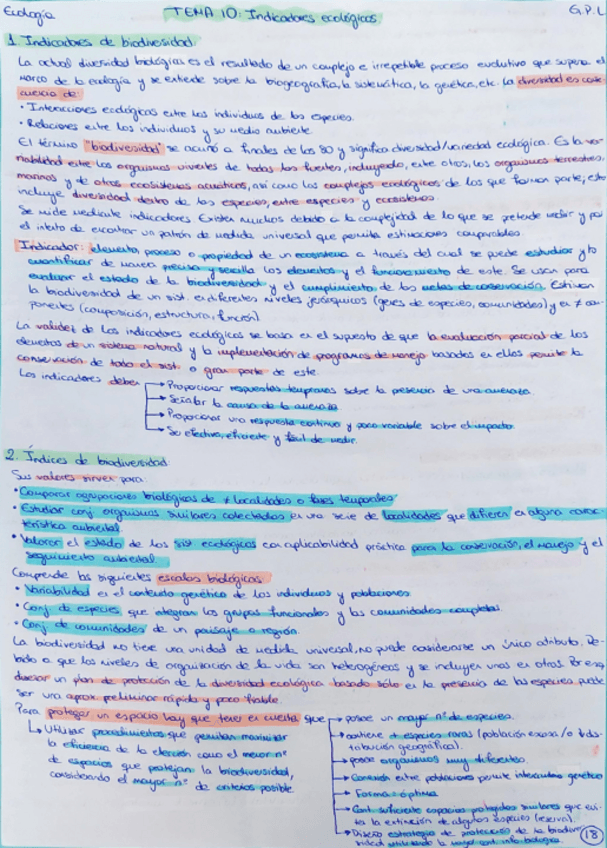 Ecología
TEMA 10: Indicadores ecológicos
G.P.L
1. Indicadores de biodiversidad
La actual diversidad biológica es el resultado de un complejo e irrepetible proceso evolutivo que supera el
marco de la ecología y se extiende sobre la biogeografía, la sistemática, la genética, etc. La diversidad es conse-
cuencia de:
• Interacciones ecológicas entre los individuos de las especies.
• Relaciones entre los individuos y su medio ambiente.
El término "biodiversidad" se acuñó a finales de los 80 y significa diversidad/variedad ecológica. Es la va-
riabilidad entre los organismos vivientes de todas las fuentes, incluyendo, entre otros, los organismos terrestres,
marinos y de otros ecosistemas acuáticos, así como los complejos ecológicos de los que forman parte, esto
incluye diversidad dentro de las especies, entre especies y ecosistemas.
Se mide mediante indicadores. Existen muchos debido a la complejidad de lo que se pretende medir y por
el intento de encontrar un patrón de medida universal que permita estimaciones comparables.
Indicador: elemento, proceso o propiedad de un ecosistema a través del cual se puede estudiar y/o
cuantificar de manera precisa y sencilla los elementos y el funcionamiento de este. Se usan para
evaluar el estado de la biodiversidad y el cumplimiento de las metas de conservación. Estiman
la biodiversidad de un sist. en diferentes niveles jerárquicos (genes de especies, comunidades) y en ≠ com-
ponentes (composición, estructura, función).
La validez de los indicadores ecológicos se basa en el supuesto de que la evaluación parcial de los
elementos de un sistema natural y la implementación de programas de manejo basados en ellos permite la
conservación de todo el sist. o gran parte de este.
Los indicadores deben
→ Proporcionar respuestas tempranas sobre la presencia de una amenaza
→ Señalar la causa de la amenaza
→ Proporcionar una respuesta continua y poco variable sobre el impacto.
→ Ser efectivo, eficiente y fácil de medir.
2. Índices de biodiversidad
Sus valores sirven para:
• Comparar agrupaciones biológicas de ≠ localidades o fases temporales
• Estudiar conj. organismos similares colectados en una serie de localidades que difieren en alguna carac-
terística ambiental
• Valorar el estado de los sist ecológicos con aplicabilidad práctica para la conservación, el manejo y el
seguimiento ambiental.
Comprende las siguientes escalas biológicas
• Variabilidad en el contenido genético de los individuos y poblaciones
• Conj. de especies que integran los grupos funcionales y las comunidades completas
• Conj. de comunidades de un paisaje o región.
La biodiversidad no tiene una unidad de medida universal, no puede considerarse un único atributo. De-
bido a que los niveles de organización de la vida son heterogéneos y se incluyen unos en otros. Por eso,
diseñar un plan de protección de la diversidad ecológica basado sólo en la presencia de las especies puede
ser una aprox. preliminar rápida y poco fiable.
Para proteger un espacio hay que tener en cuenta que
→ posee un mayor nº de especies.
→ contiene + especies raras (población escasa /o distri-
bución geográfica).
→ posee organismos muy diferentes.
→ Conexión entre poblaciones permite intercambio genético
→ Forma = óptima
→ Cant. suficiente espacios protegidos similares que evi-
ta la extinción de algunas especies (reserva).
→ Diseño estrategia de protección de la biodiver-
sidad utilizando la mayor cant. info biológica.
↳ Utilizar procedimientos que permitan maximizar
la eficiencia de la elección como el menor nº
de espacios que protejan la biodiversidad,
considerando el mayor nº de criterios posible
18